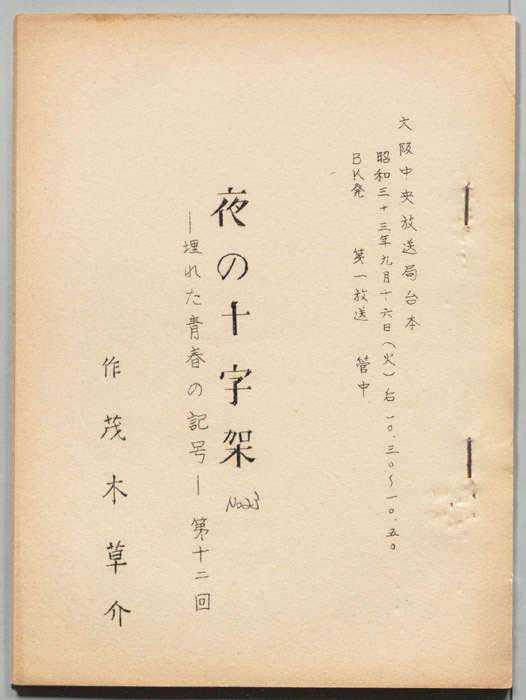 大阪中央放送局台本
昭和三十三年九月十六日(火)后一〇.三〇~一〇.五〇
BK発 第一放送 管中
夜の十字架
No23
―埋れた青春の記号― 第十二回
作 茂木草介